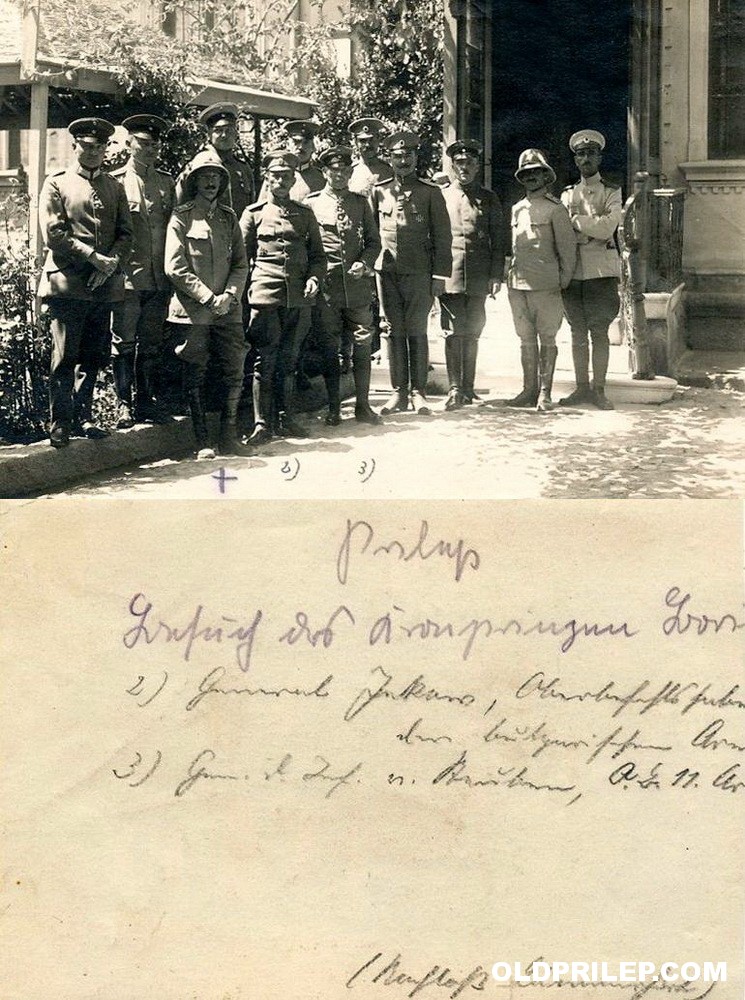 + 2) 3)
Prilep
Besuch des Kronprinzen Bori
2) General Jekow, Oberbefehlshabe
der bulgarischen Arm
3) Gen. d. Inf. v. Steuben, O. B. 11. Ar
OLDPRILEP.COM